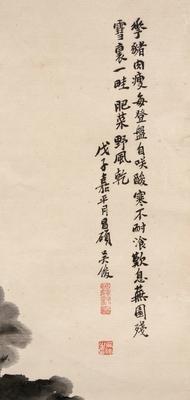 花豬肉瘦每登盤自咲酸寒不耐飡歎息蕪園殘
雪裏一畦肥菜野風乾
戊子嘉平月昌碩吳俊